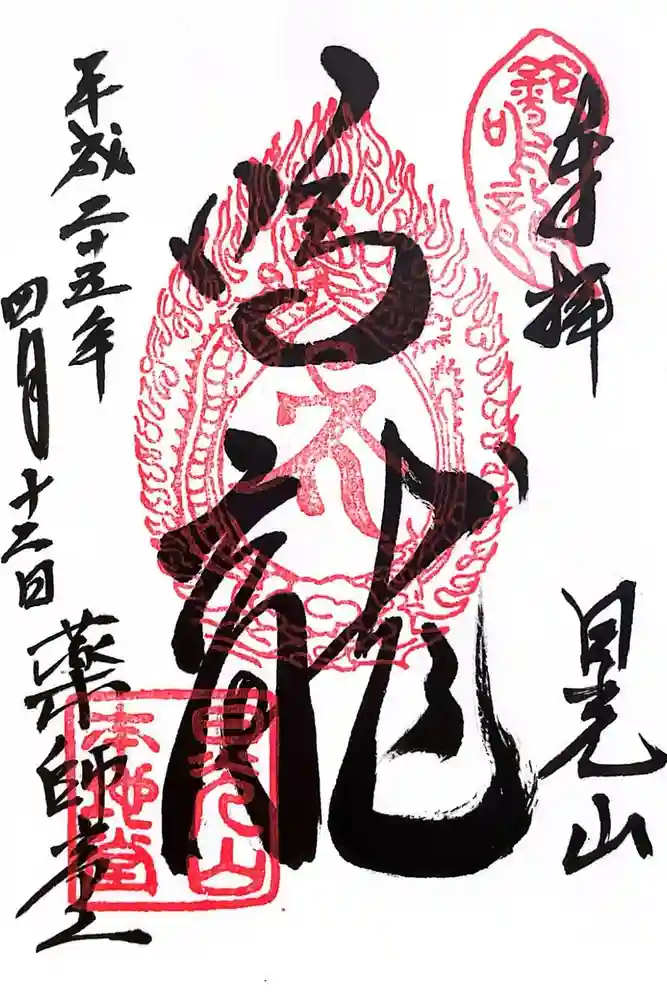 奉拝
日光山
鳴龍
平成二十五年
四月十二日
薬師堂
鈴鳴龍
日光山
本地堂